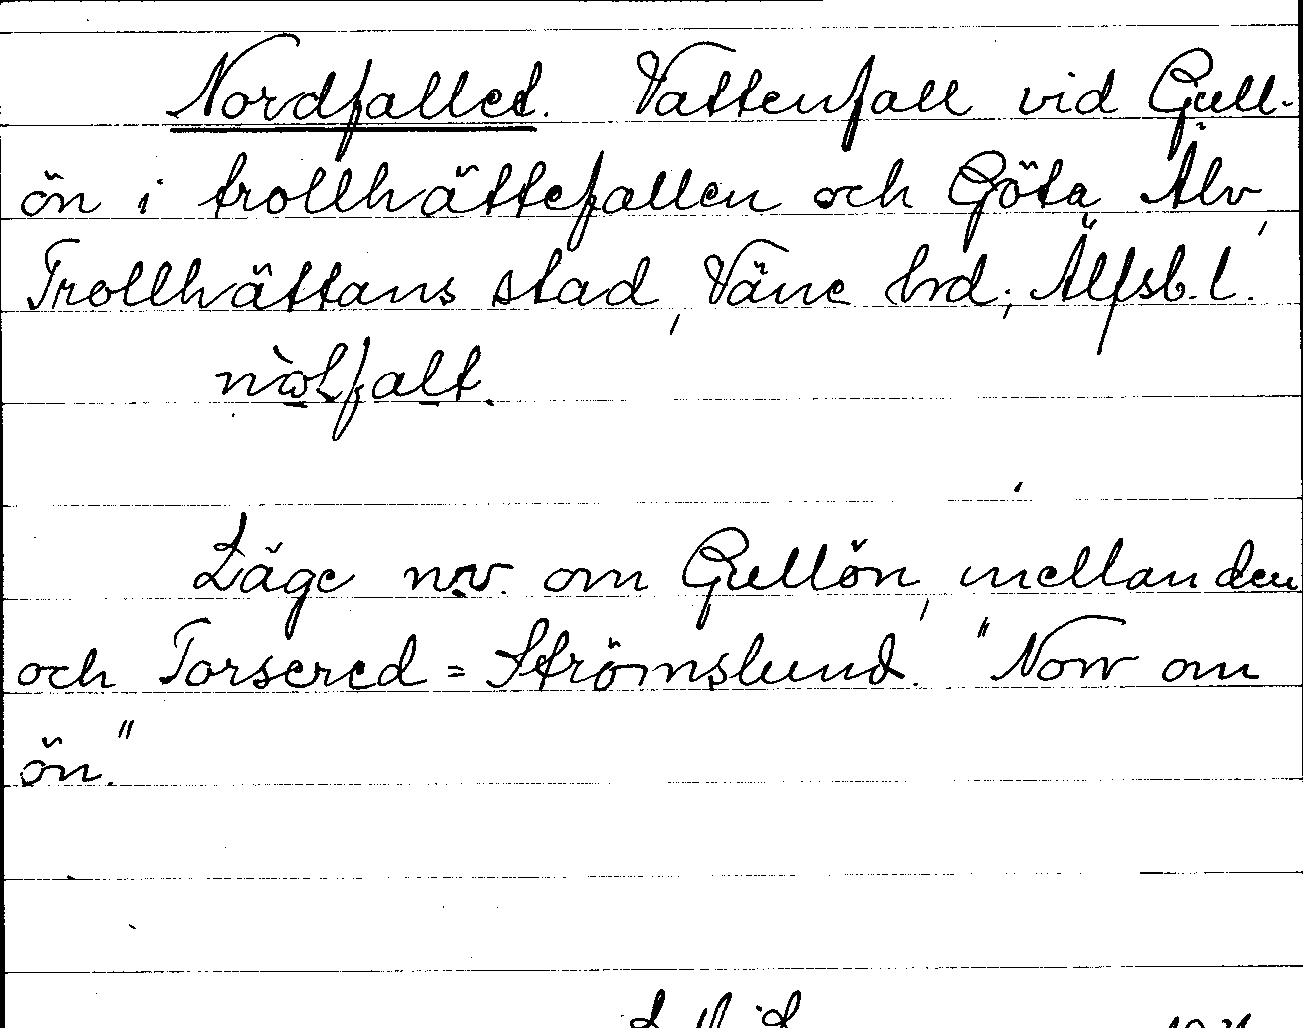 Nordfallet. Vattenfall vid Gull-
ön i trollhättefallen och Göta Älv,
Trollhättans stad, Väne hrd; Älfsb. l.
Läge n.v. om Gullön, mellan den
och Torsered = Strömslund. "Norr om
ön."